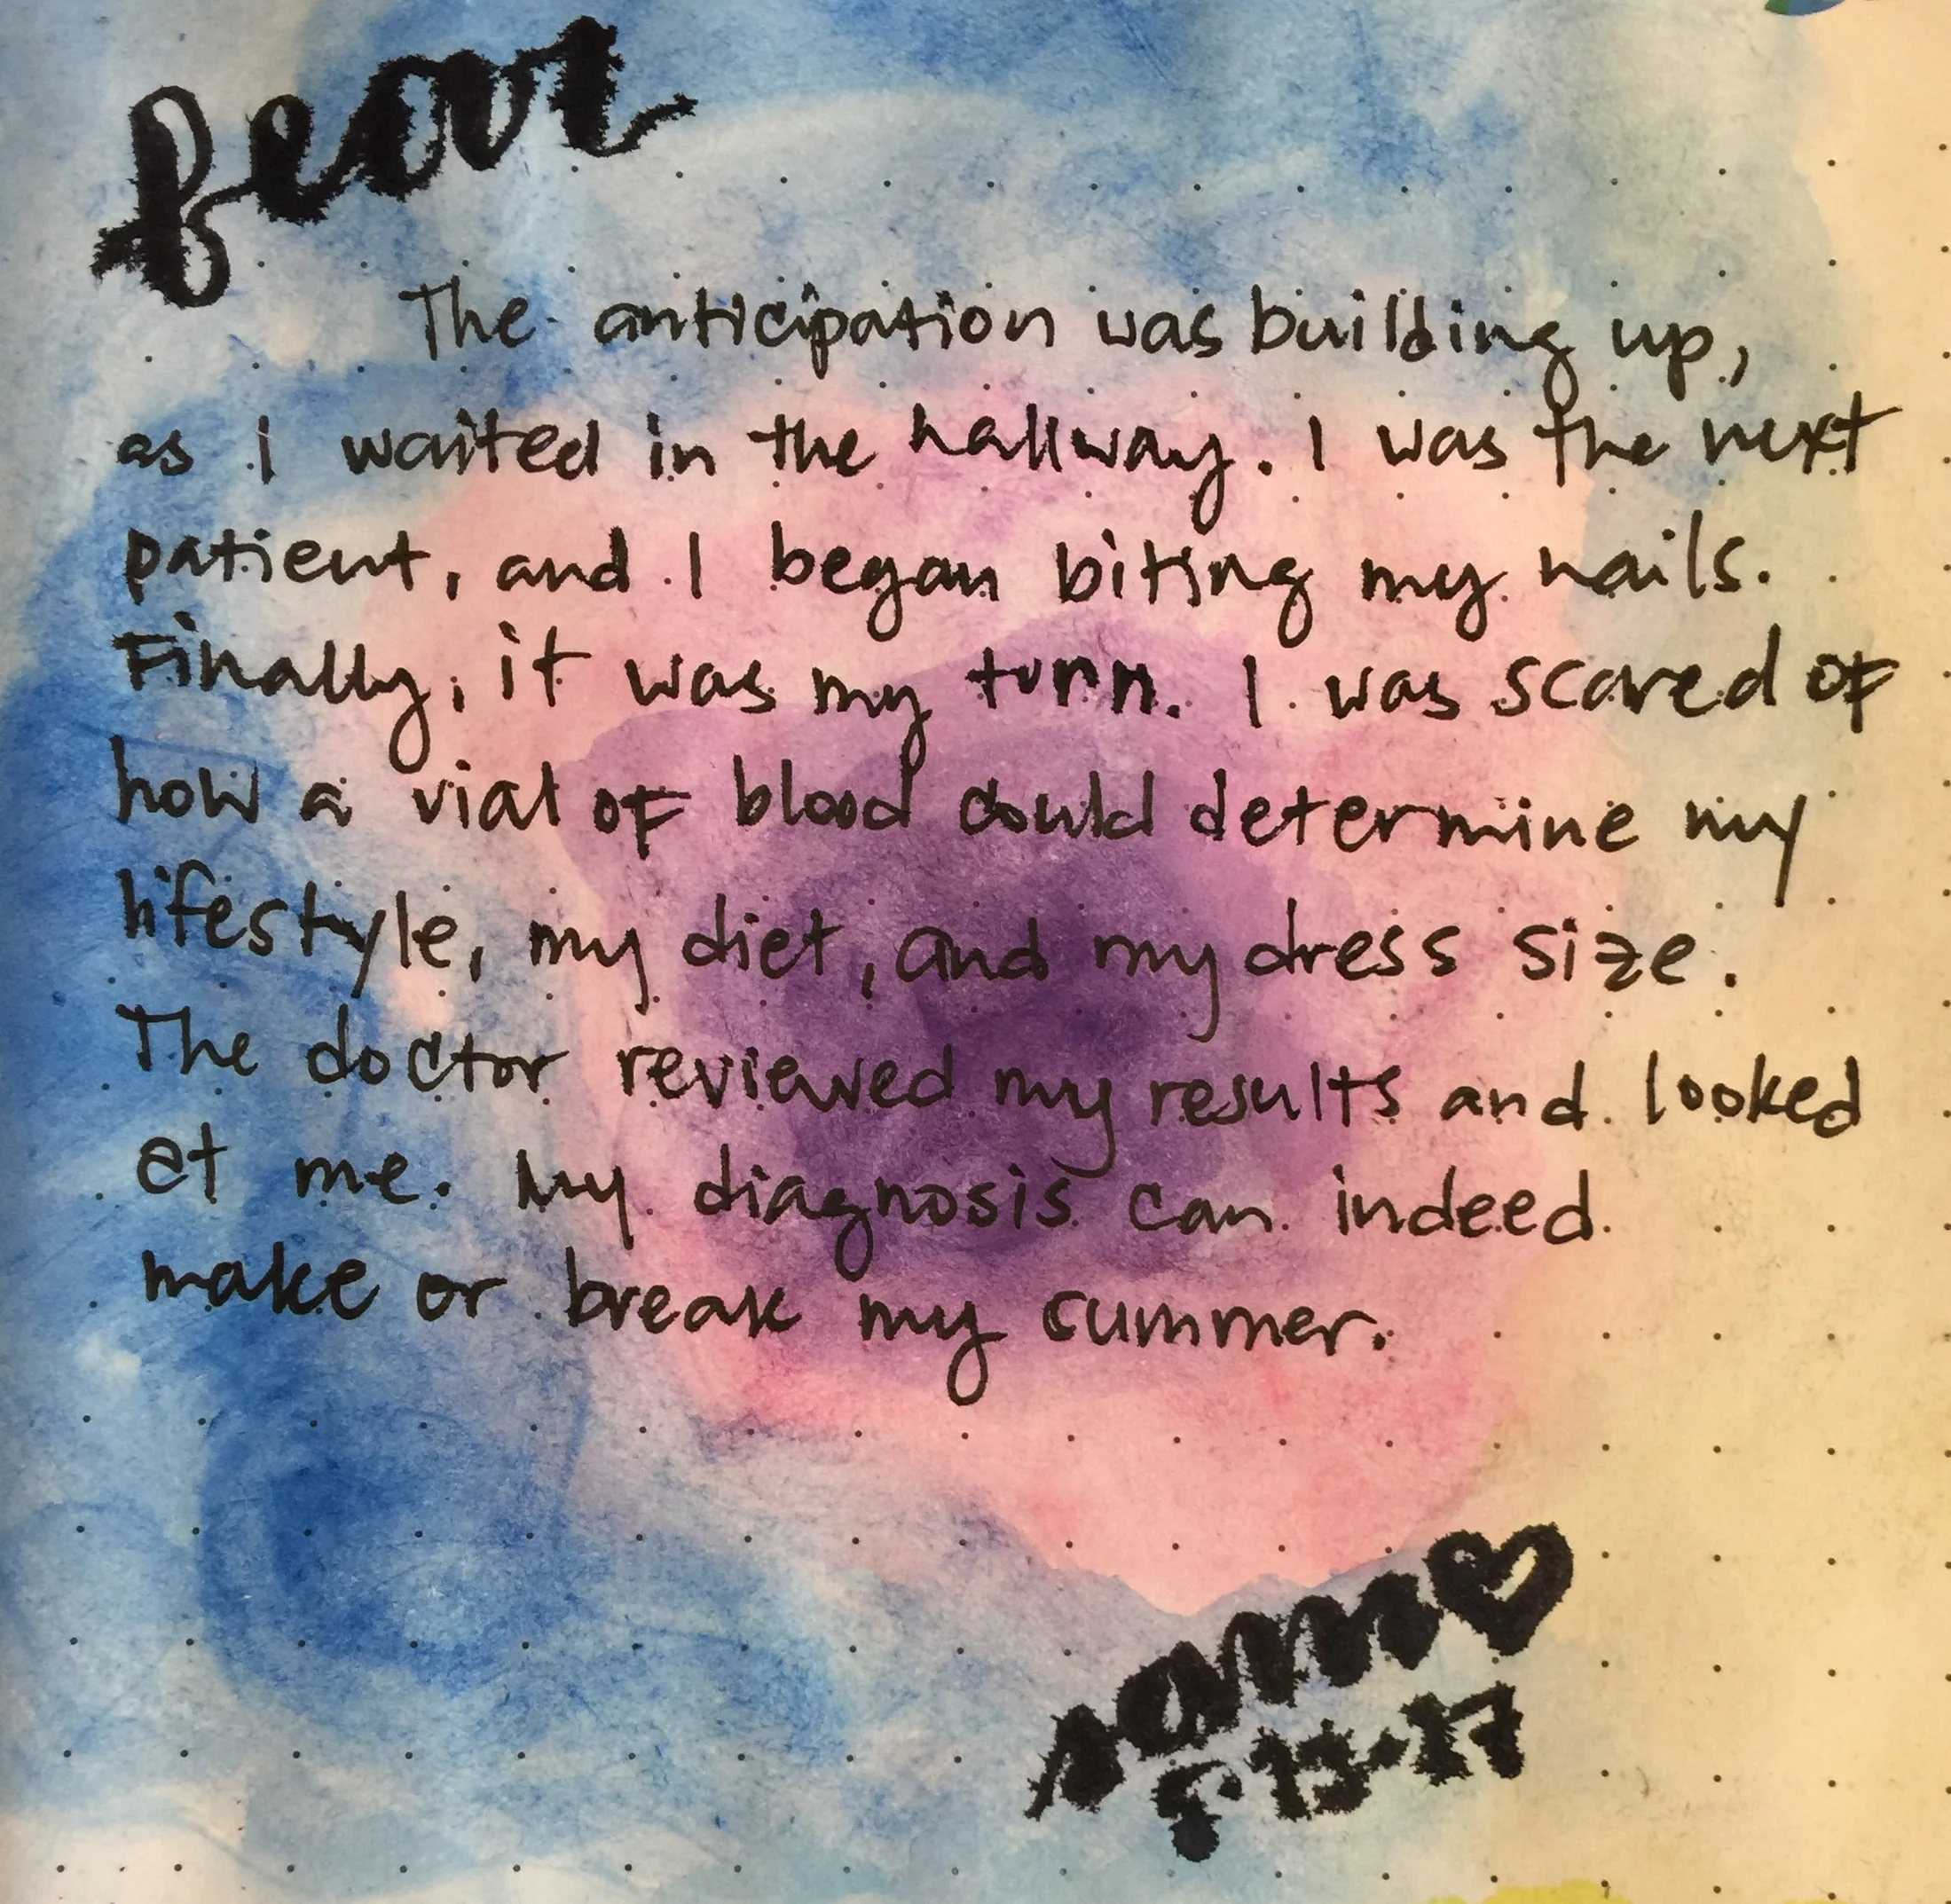 fear
The anticipation was building up,
as I waited in the hallway. I was the next
patient, and I began biting my nails.
Finally, it was my turn. I was scared of
how a vial of blood could determine my
lifestyle, my diet, and my dress size.
The doctor reviewed my results and looked
at me. My diagnosis can indeed
make or break my summer.
sam♡